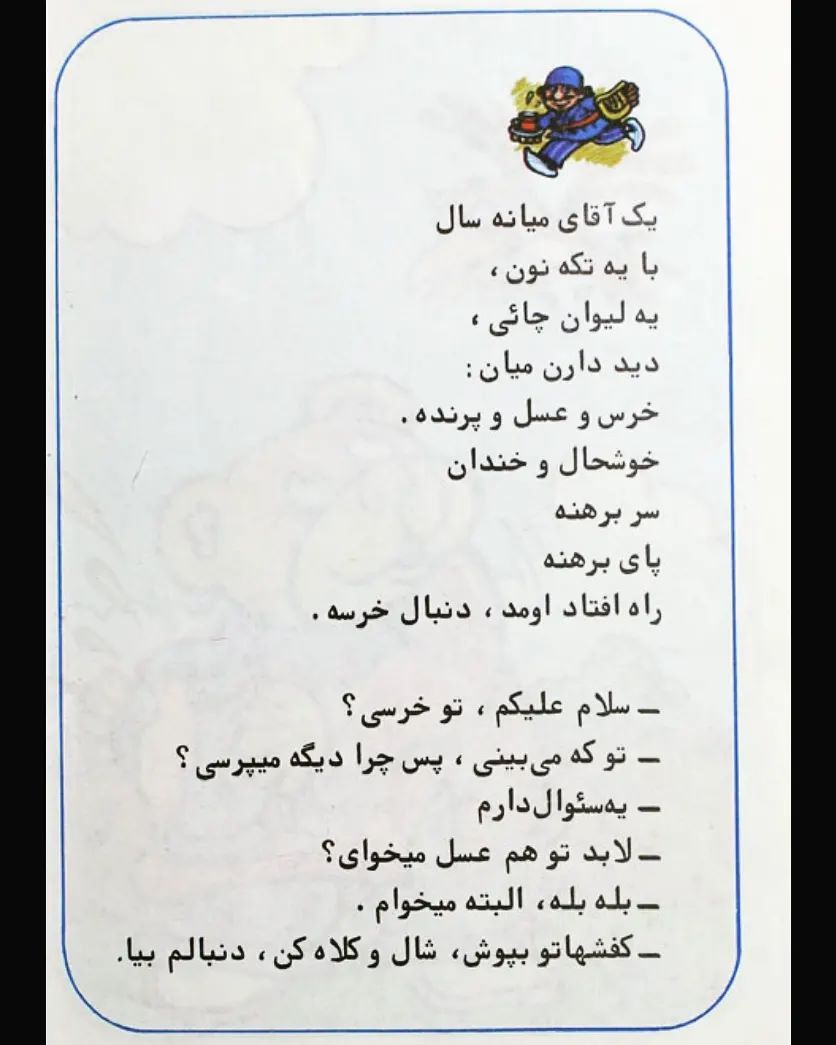 یک آقای میانه سال
با یه تکه نون ،
یه لیوان چائی ،
دید دارن میان :
خرس و عسل و پرنده .
خوشحال و خندان
سر برهنه
پای برهنه
راه افتاد اومد ، دنبال خرسه .
ــ سلام علیکم ، تو خرسی ؟
ــ تو که می‌بینی ، پس چرا دیگه میپرسی ؟
ــ یه‌سئوال‌دارم
ــ لابد تو هم عسل میخوای؟
ــ بله بله، البته میخوام .
ــ کفشهاتو بپوش، شال و کلاه کن ، دنبالم بیا.